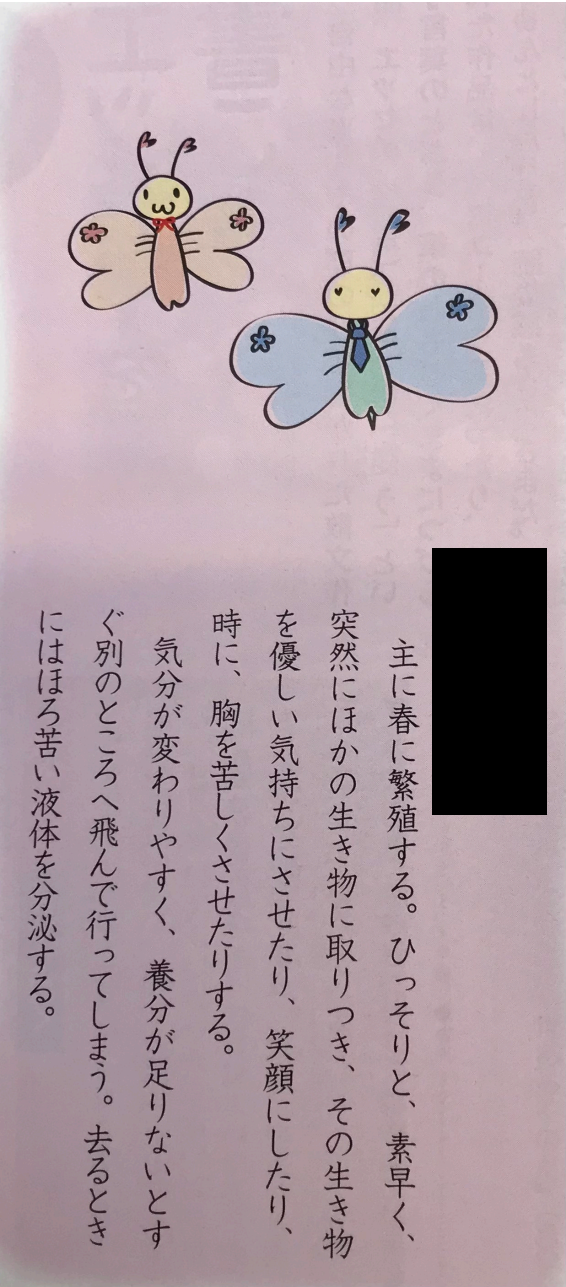 主に春に繁殖する。ひっそりと、素早く、
突然にほかの生き物に取りつき、その生き物
を優しい気持ちにさせたり、笑顔にしたり、
時に、胸を苦しくさせたりする。
気分が変わりやすく、養分が足りないとす
ぐ別のところへ飛んで行ってしまう。去るとき
にはほろ苦い液体を分泌する。